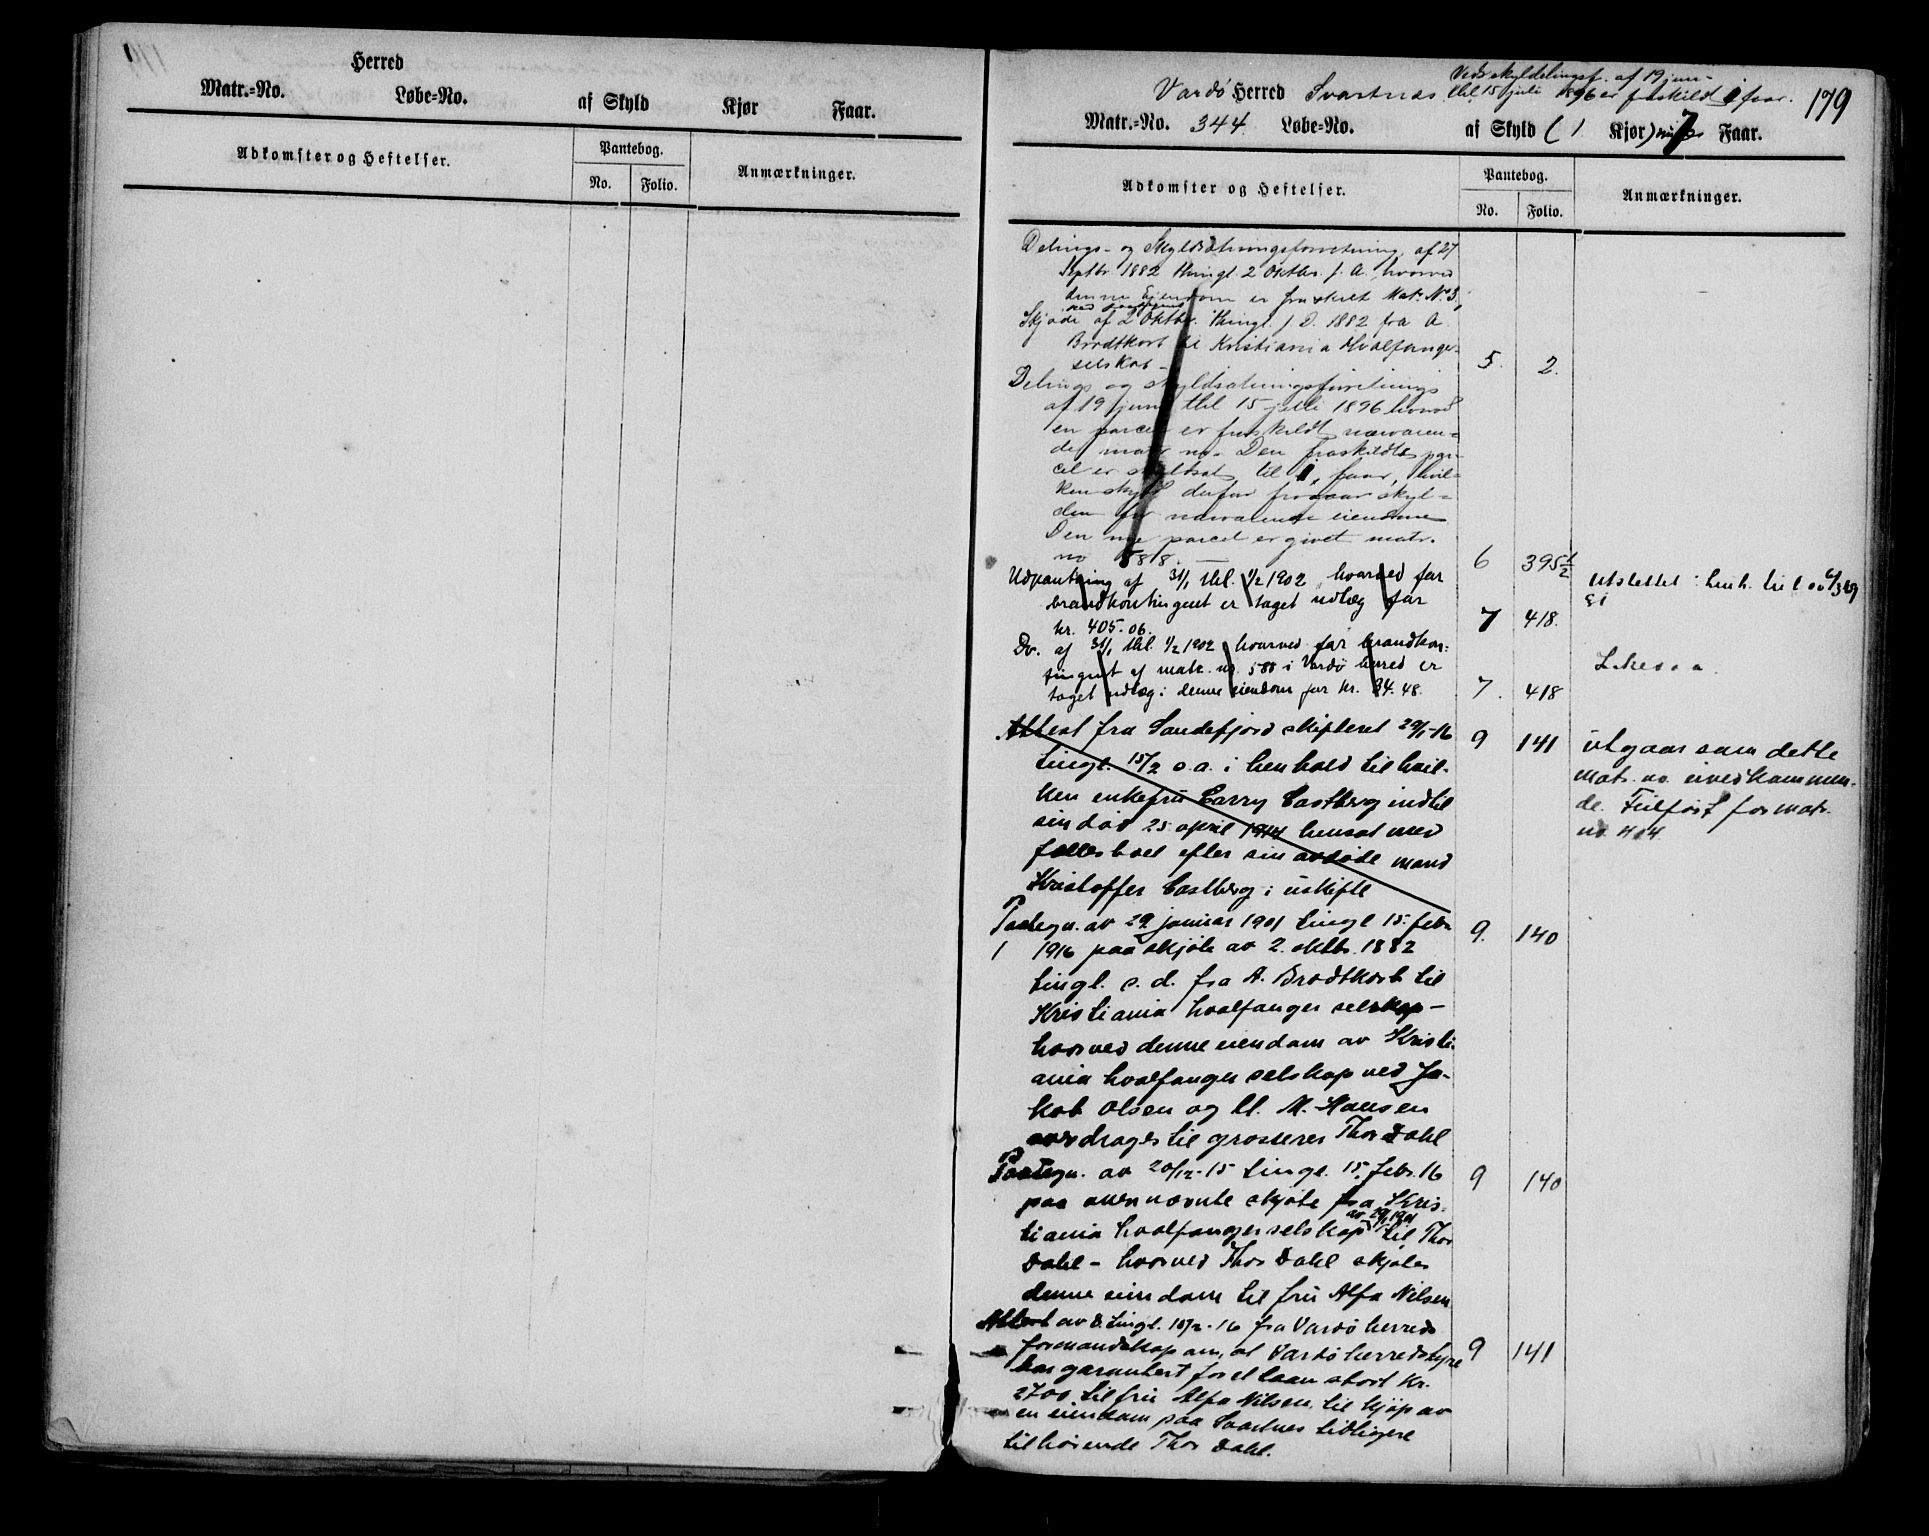 Herred
Matr.-No. Løbe-No. af Skyld Kjør Faar.
Adkomster og Heftelser. Pantebog. Anmærkninger.
No. Folio.
179
Ved skyldelingsf. af 19 juni
Vardø Herred Svartnæs thl. 15 juli 1896 er fraskild 1 faar.
Matr.-No. 344 Løbe-No. af Skyld (1 Kjør) 7 Faar.
Adkomster og Heftelser. Pantebog. Anmærkninger.
No. Folio.
Delings- og Skyldsætningsforretning af 27
Septbr 1882 thingl. 2 Oktbr. s. A., hvorved
denne Ejendom er fraskilt Mat. No. 3.
Skjøde af 2 Oktbr. thingl. s. D. 1882 fra A.
Brodtkorb til Kristiania Hvalfanger-
selskab – 5. 2.
Delings og skyldsætningsforretning
af 19 juni thl. 15 juli 1896 hvorved
en parcel er fraskildt nærværen-
de matr. no. Den fraskildte par-
cel er skyldsat til 1 faar, hvil-
ken skyld derfor fragaar skyl-
den for nærværende eiendom
Den nye parcel er givet matr.
no 588. — 6 395 1/2
Udpantning af 31/1 thl. 1/2 1902, hvorved for
brandkontingent er taget udlæg for
kr. 405.06. 7 418.
Utslettet i henh. til lov 6/3 1869
§1
Do. af 31/1 thl. 1/2 1902 hvorved for brandkon-
tingent af matr. no. 588 i Vardø herred er
taget udlæg i denne eiendom for kr. 34.48. 7. 418
Likesaa.
Attest fra Sandefjord skifteret 29/1-16 9 141
tingl. 15/2 s.a. i henhold til hvil-
ken enkefru Carry Castberg indtil
sin død 25 april 1914 hensat med
fællesboet efter sin avdøde mand
Kristoffer Castberg i uskifte
utgaar som dette
matr. no. uvedkommen-
de. Tilføst for matr.
no 404
Paategn. av 29 januar 1901 tingl 15. febr. 9. 140
1 1916 paa skjøte av 2. oktbr. 1882
tingl. s. d. fra A. Brodtkorb til
Kristiania hvalfanger selskap –
hvorved denne eiendom av Kristi-
ania hvalfanger selskap ved Ja-
kob Olsen og M. Hansen
overdrages til grosserer Thor Dahl
Paategn. av 20/12-15 tingl. 15. febr. 16 9 140
paa ovennævnte skjøte fra Kris-
av 29/1 1901
tiania hvalfangerselskap til Thor
Dahl – hvorved Thor Dahl skjøter
denne eiendom til fru Alfa Nilsen
Attest av D. tingl. 15/2-16 fra Vardø herreds
formandskap om, at Vardø herredstyre 9 141
har garantert for et laan stort kr.
2700 til fru Alfa Nilsen til kjøp av
en eiendom paa Svartnes tidligere
tilhørende Thor Dahl.